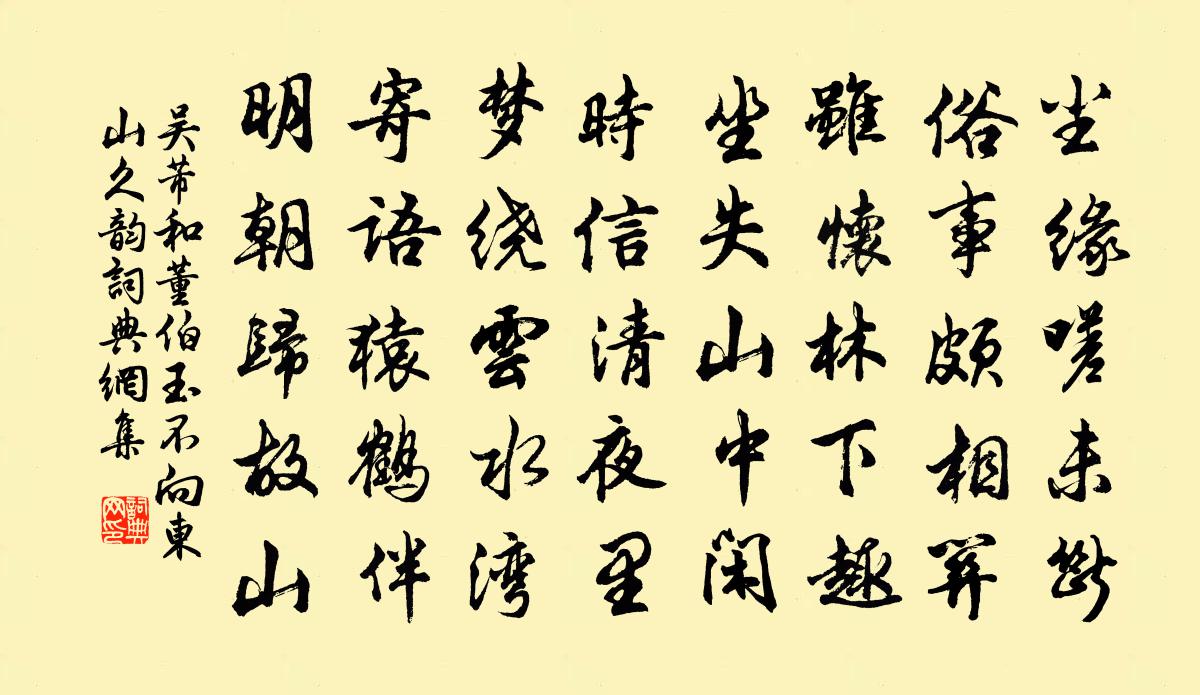 尘缘嗟未斷
俗事颇相關
雖懷林下趣
坐失山中闲
時信清夜里
梦绕雲水湾
寄語猿鶴伴
明朝歸故山
吴芾和董伯玉不向東
山久韵詞典網集
詞典网印